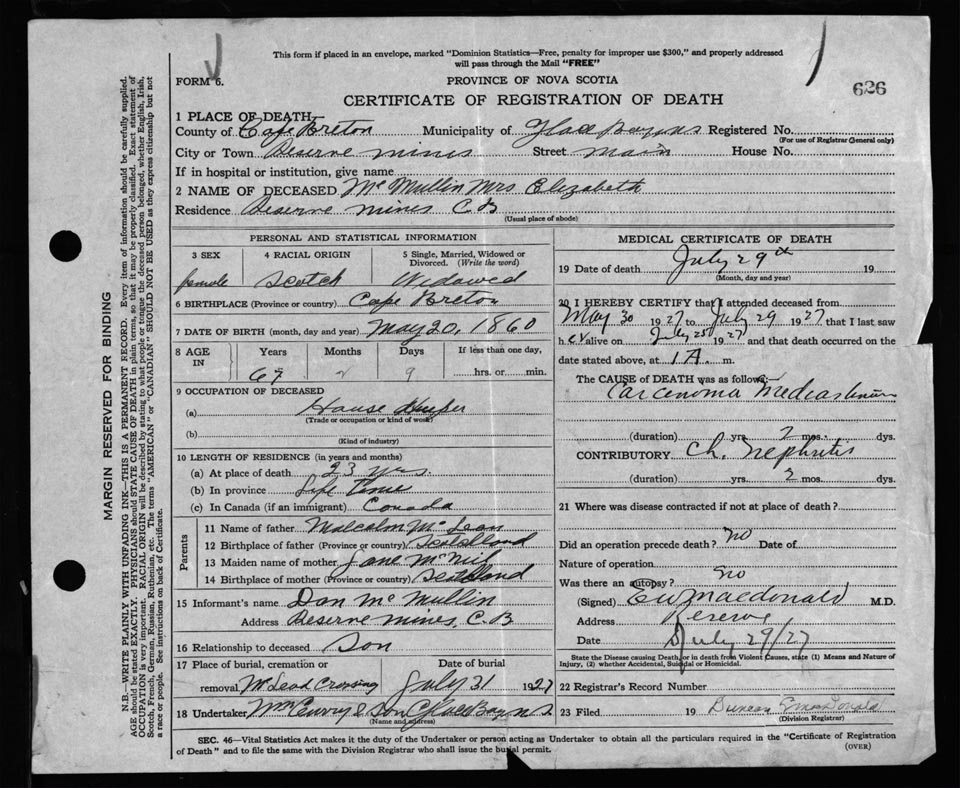 This form if placed in an envelope, marked "Dominion Statistics—Free, penalty for improper use $300," and properly addressed
will pass through the Mail "FREE"
FORM 6.
PROVINCE OF NOVA SCOTIA
626
CERTIFICATE OF REGISTRATION OF DEATH
1 PLACE OF DEATH—
County of Cape Breton Municipality of Glace Bay NS Registered No.
(For use of Registrar General only)
City or Town Reserve Mines Street Main House No.
If in hospital or institution, give name
2 NAME OF DECEASED McMullin Mrs Elizabeth
Residence Reserve Mines C.B
(Usual place of abode)
PERSONAL AND STATISTICAL INFORMATION
3 SEX 4 RACIAL ORIGIN 5 Single, Married, Widowed or Divorced. (Write the word)
female Scotch Widowed
6 BIRTHPLACE (Province or country) Cape Breton
7 DATE OF BIRTH (month, day and year) May 20, 1860
8 AGE IN Years Months Days If less than one day,
67 2 9 hrs. or min.
9 OCCUPATION OF DECEASED
(a) House Keeper
(Trade or occupation or kind of work)
(b)
(Kind of industry)
10 LENGTH OF RESIDENCE (in years and months)
(a) At place of death 23 yrs.
(b) In province Life Time
(c) In Canada (if an immigrant) Canada
Parents
11 Name of father Malcolm McLean
12 Birthplace of father (Province or country) Scotland
13 Maiden name of mother Jane McNeil
14 Birthplace of mother (Province or country) Scotland
15 Informant's name Dan McMullin
Address Reserve Mines, C.B
16 Relationship to deceased Son
17 Place of burial, cremation or Date of burial
removal McLeod Crossing July 31 1927
18 Undertaker & Son Glace Bay N.S
(Name and address)
MEDICAL CERTIFICATE OF DEATH
19 Date of death July 29th 19
(Month, day and year)
20 I HEREBY CERTIFY that I attended deceased from
May 30 1927 to July 29 1927 that I last saw
h er alive on July 25 1927 and that death occurred on the
date stated above, at 1 A. m.
The CAUSE of DEATH was as follows:—
Carcinoma Mediastinum
(duration) yrs 2 mos. dys.
CONTRIBUTORY Ch. Nephritis
(duration) 2 mos. dys.
21 Where was disease contracted if not at place of death?
Did an operation precede death? no Date of
Nature of operation
Was there an autopsy? no
(Signed) E W Macdonald M.D.
Address Reserve
Date July 29/27
State the Disease causing Death, or in death from Violent Causes, state (1) Means and Nature of
Injury, (2) whether Accidental, Suicidal or Homicidal.
22 Registrar's Record Number
23 Filed 19 Duncan MacDonald
(Division Registrar)
SEC. 46—Vital Statistics Act makes it the duty of the Undertaker or person acting as Undertaker to obtain all the particulars required in the "Certificate of Registration
of Death" and to file the same with the Division Registrar who shall issue the burial permit.
(OVER)
MARGIN RESERVED FOR BINDING
N.B.—WRITE PLAINLY WITH UNFADING INK—THIS IS A PERMANENT RECORD. Every item of information should be carefully supplied.
AGE should be stated EXACTLY. PHYSICIANS should STATE CAUSE OF DEATH in plain terms, so that it may be properly classified. Exact statement of
OCCUPATION is very important. RACIAL ORIGIN will be described by stating to what people or tongue the deceased person belonged, whether English, Irish,
Scotch, French, German, Russian, Ruthenian, etc. The terms "AMERICAN" or "CANADIAN" SHOULD NOT BE USED as they express citizenship but not
a race or people. See instructions on back of Certificate.